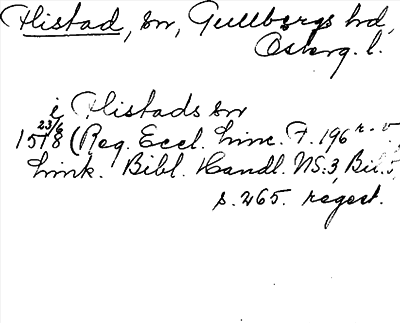 Flistad, sn, Gullbergs hd,
Österg. l.
i Flistads sn
23/6
1518 (Reg. Eccl. Linc. F. 196 r.-v.,
Link. Bibl. Handl. NS:3, Bil.
s. 265. regest.